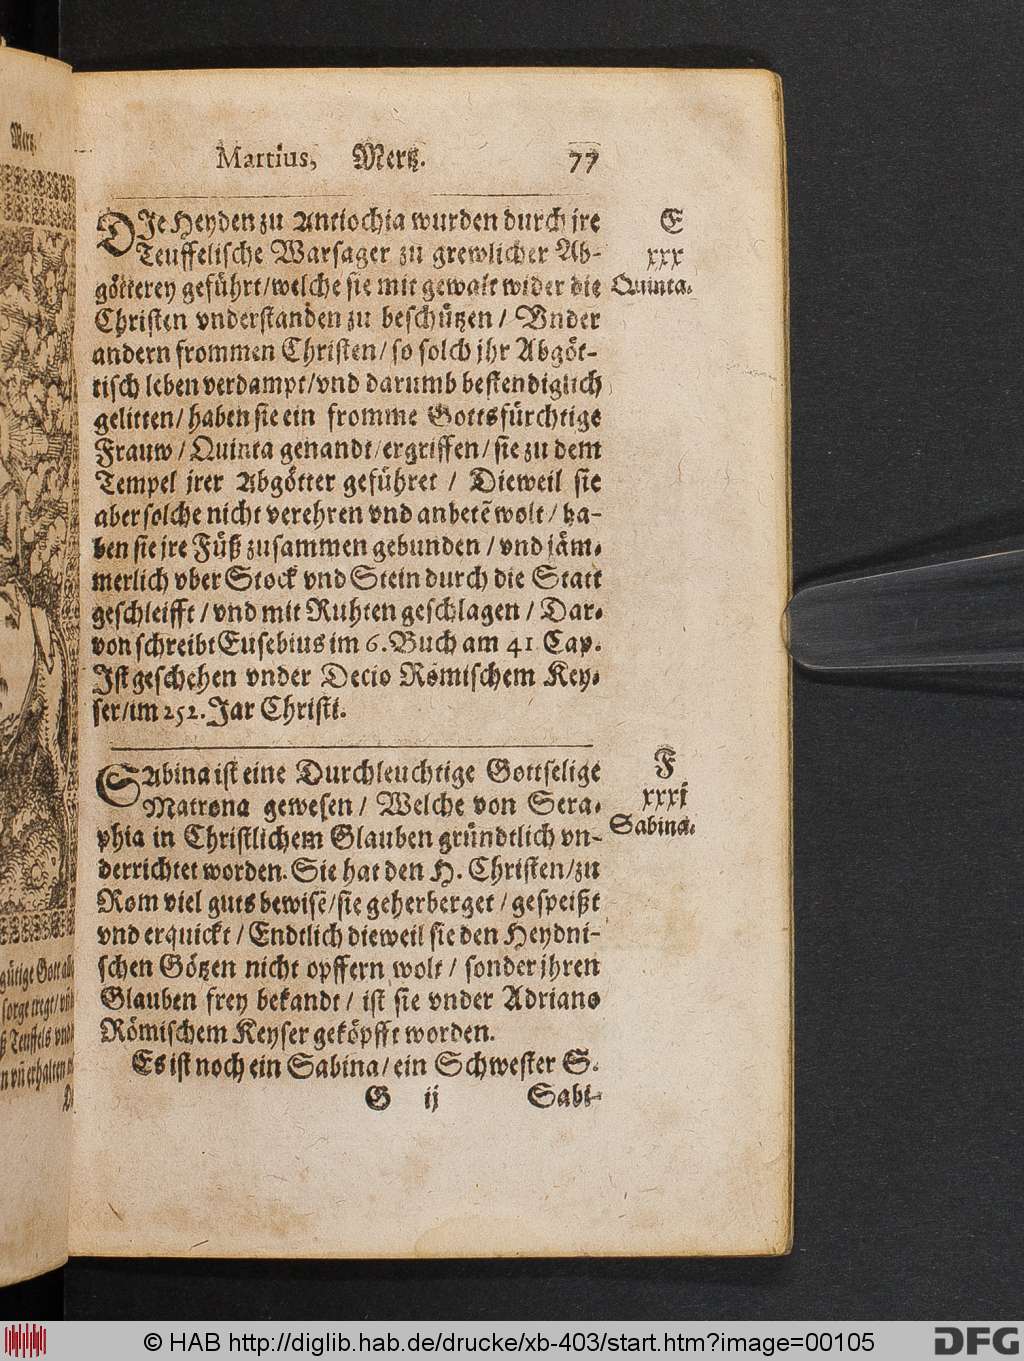 Martius, Mertz. 77
DIe Heyden zu Antiochia wurden durch jre
E
Teuffelische Warsager zu grewlicher Ab-
xxx
götterey geführt/welche sie mit gewalt wider die
Quinta.
Christen vnderstanden zu beschützen / Vnder
andern frommen Christen/ so solch jhr Abgöt-
tisch leben verdampt/vnd darumb bestendiglich
gelitten/ haben sie ein fromme Gottsfürchtige
Frauw / Quinta genandt/ergriffen/ sie zu dem
Tempel jrer Abgötter geführet / Dieweil sie
aber solche nicht verehren vnd anbetē wolt / ha-
ben sie jre Füß zusammen gebunden / vnd jäm-
merlich vber Stock vnd Stein durch die Statt
geschleifft / vnd mit Ruhten geschlagen / Dar-
von schreibt Eusebius im 6. Buch am 41 Cap.
Ist geschehen vnder Decio Römischem Key-
ser/im 252. Jar Christi.
F
SAbina ist eine Durchleuchtige Gottselige
xxxj
Matrona gewesen / Welche von Sera-
Sabina.
phia in Christlichem Glauben gründtlich vn-
derrichtet worden. Sie hat den H. Christen/zu
Rom viel guts bewisē/sie geherberget / gespeißt
vnd erquickt / Endtlich dieweil sie den Heydni-
schen Götzen nicht opffern wolt / sonder jhren
Glauben frey bekandt / ist sie vnder Adriano
Römischem Keyser geköpfft worden.
Es ist noch ein Sabina/ ein Schwester S.
G ij Sabi-
Mertz.
gütige Gott
sorge tregt/
Teuffels
erhalten
© HAB http://diglib.hab.de/drucke/xb-403/start.htm?image=00105
DFG